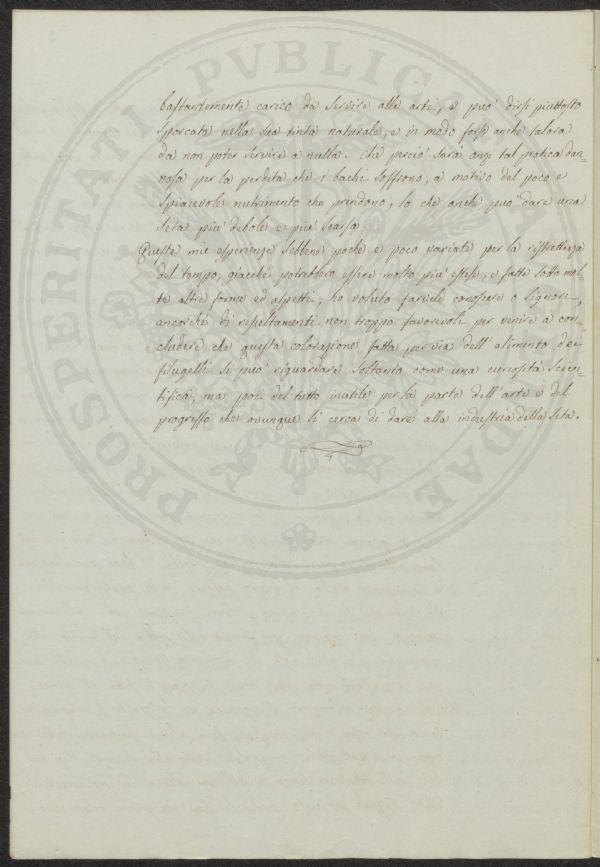 PROSPERITATI PVBLICAE
bastantemente carico da servire alle arti, e può dirsi piuttosto
sporcata nella sua tinta naturale, e in modo forse anche talora
da non poter servire a nulla. Che perciò sarà anzi tal pratica dan=
nosa per la perdita che i bachi soffrono, a motivo del poco e
spiacevole nutrimento che prendono, lo che anche può dare una
seta più debole e più scarsa
Queste mie esperienze sebbene poche e poco variate per la ristrettezza
del tempo, giacchè potrebbero essere molto più estese, e fatte sotto mol
te altre forme ed aspetti, ho voluto farvele conoscere o Signori,
ancorchè di resultamenti non troppo favorevoli per venire a con=
cludere, che questa colorazione fatta per via dell'alimento dei
filugelli si può riguardare soltanto come una curiosità scien=
tifica, ma poi del tutto inutile per la parte dell'arte e del
progresso che ovunque si cerca di dare alla industria della seta.